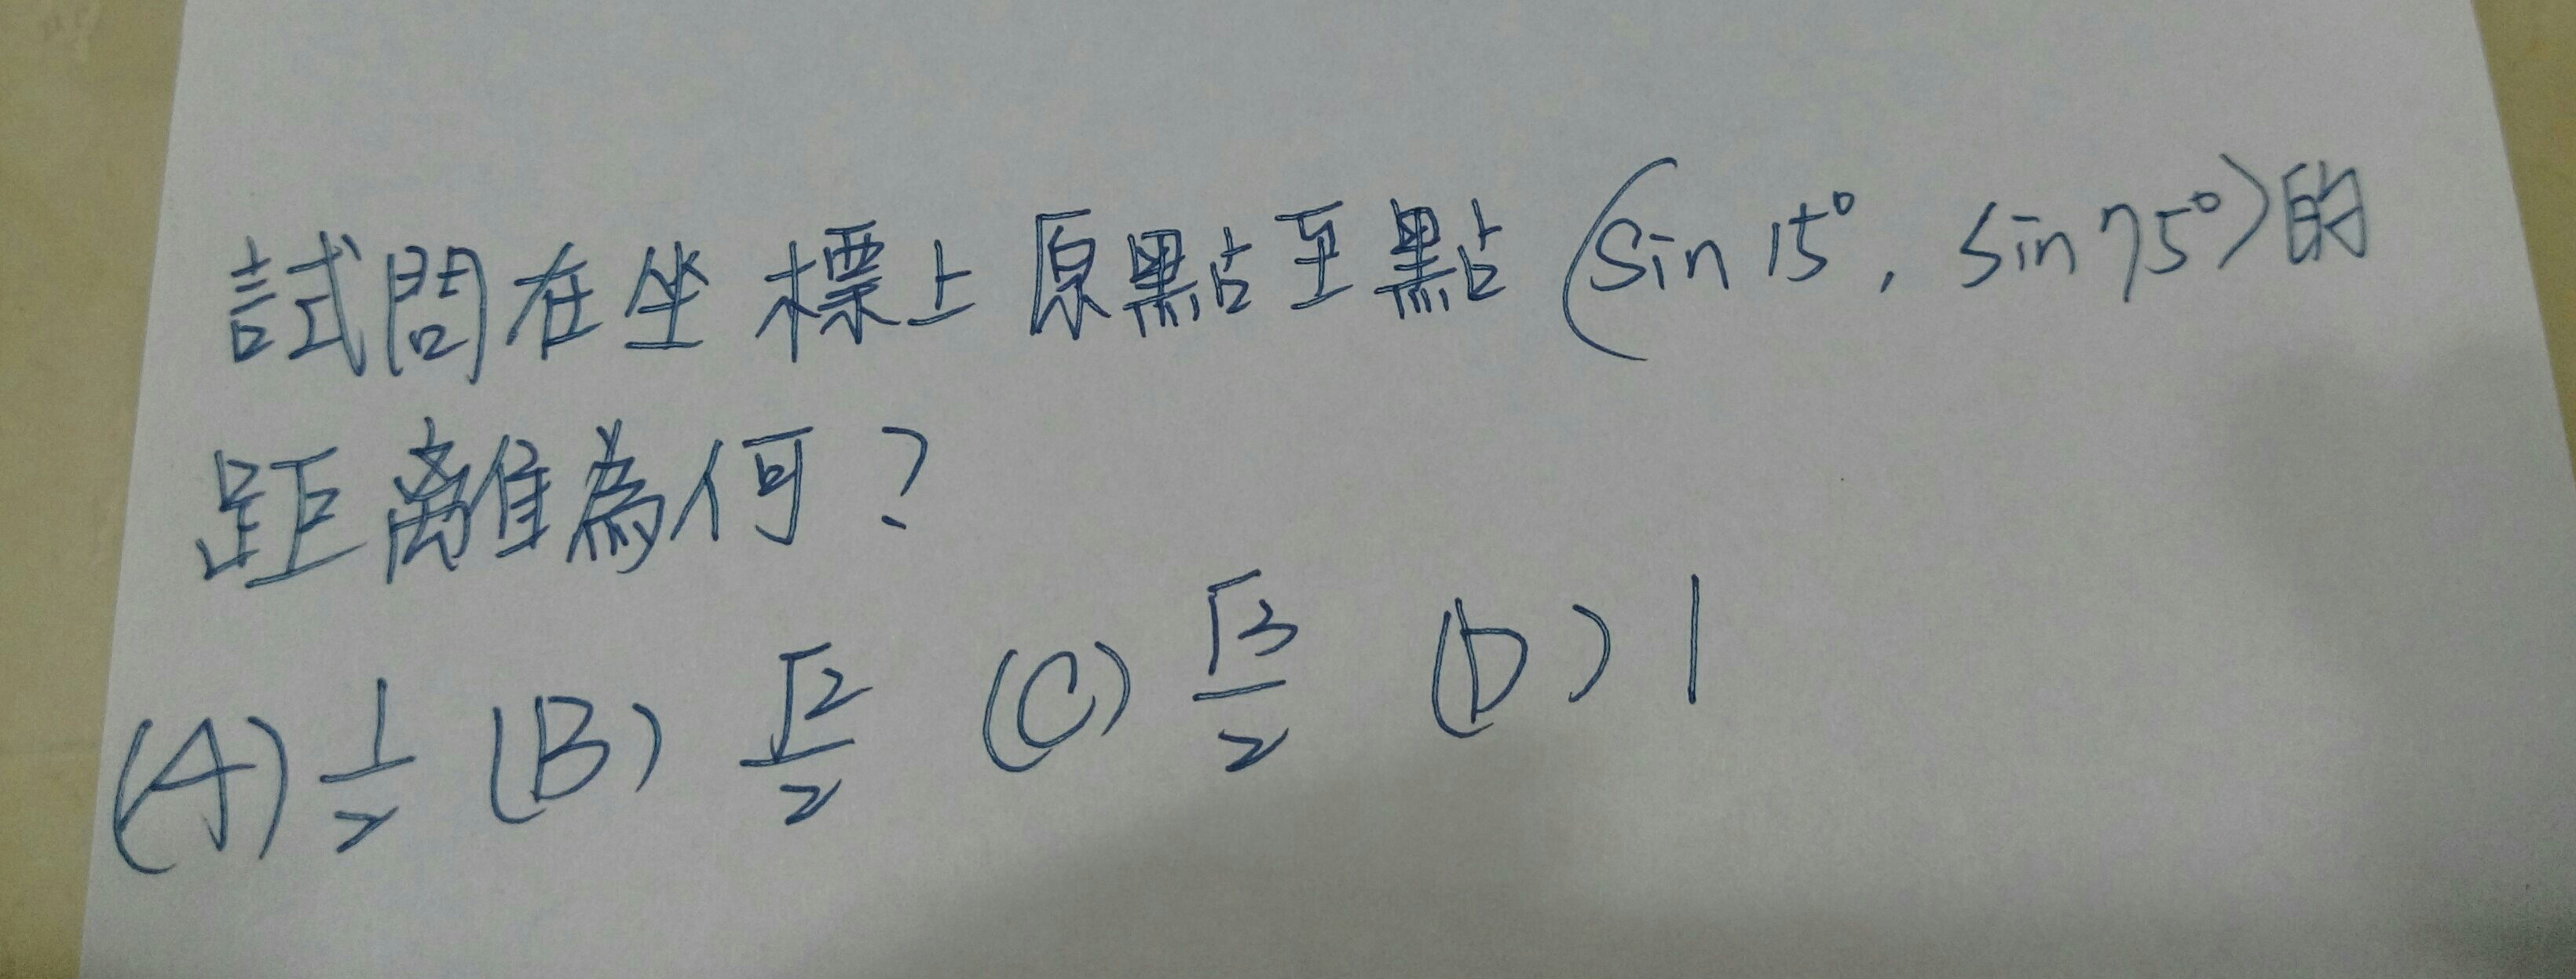 試問在坐標上原點至點(sin 15°, sin 75°)的
距離為何?
(A) 1/2 (B) √2/2 (C) √3/2 (D) 1